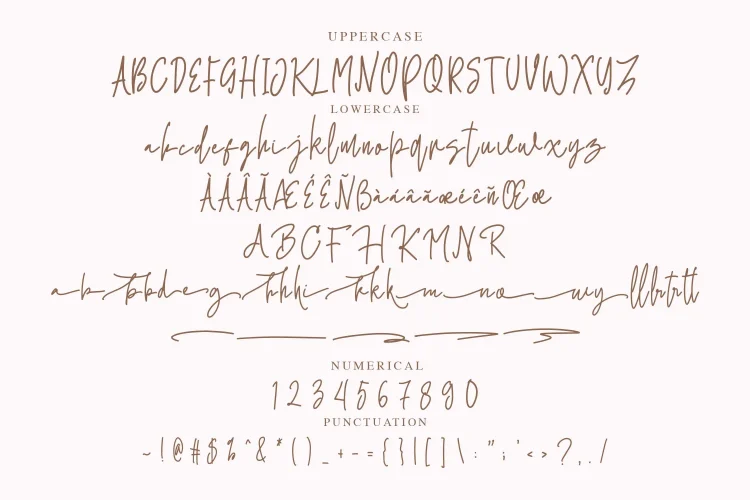 UPPERCASE
ABCDEFGHIJKLMNOPQRSTUVWXYZ
LOWERCASE
abcdefghijklmnopqrstuvwxyz
ÀÁÂÃÆÉÊÑßàáâãæéêñŒœ
ABCFHKMNR
a b bbdeg hhhi kkk m no wy ll lt rt tt
NUMERICAL
1 2 3 4 5 6 7 8 9 0
PUNCTUATION
~ ! @ # $ % ^ & * ( ) _ + - = { } | [ ] \ : " ; ' < > ? , . /